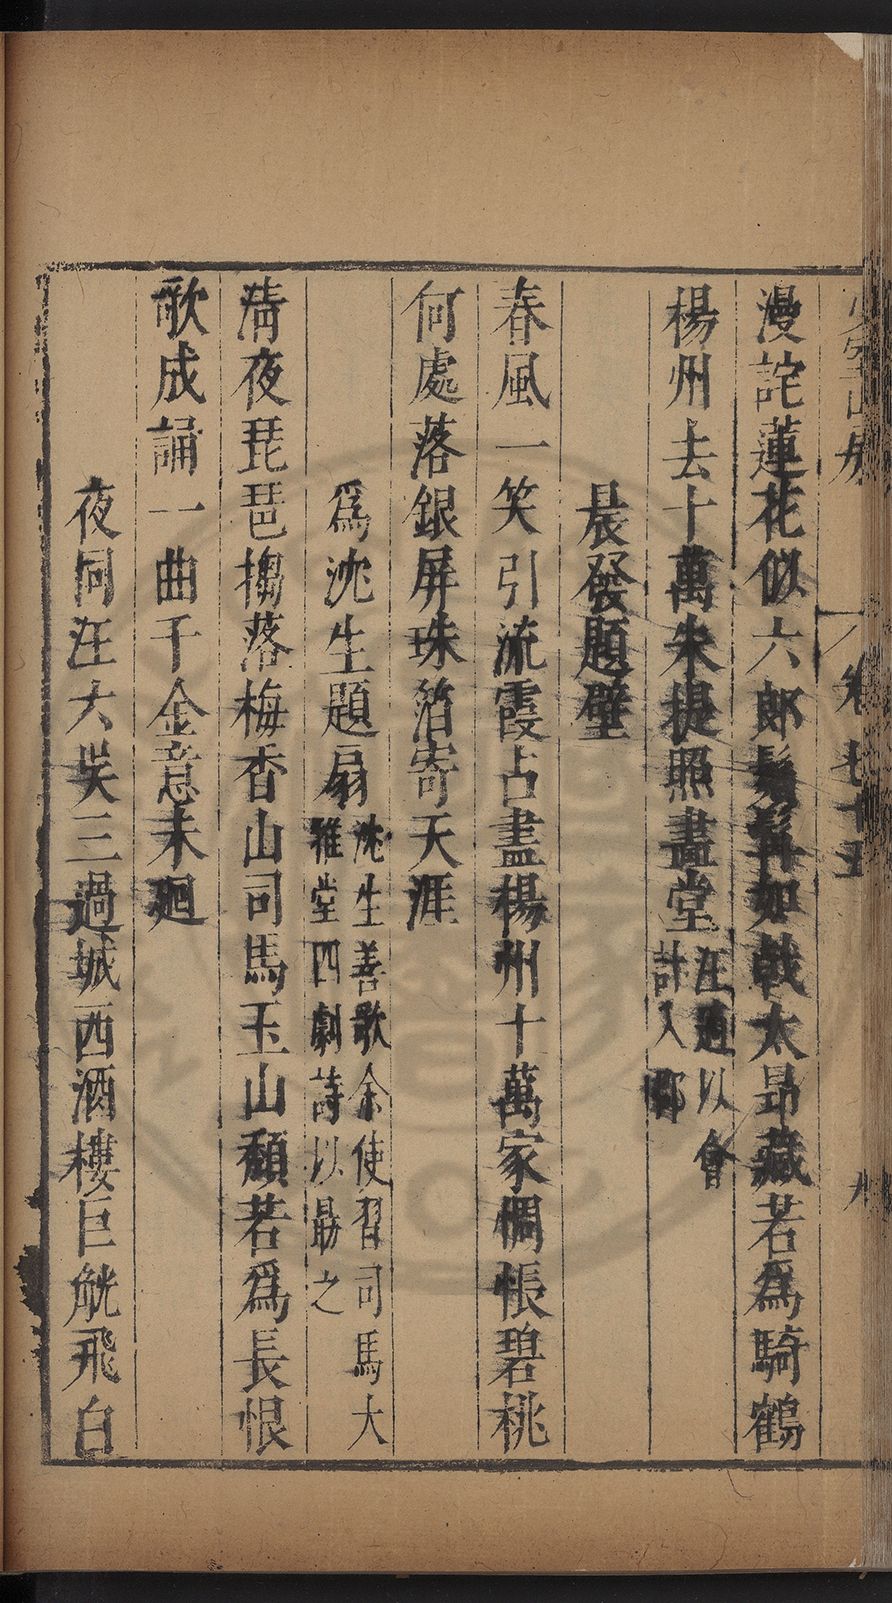 漫詫蓮花似六郎鬚髯如戟太昂藏若爲騎鶴
楊州去十萬朱提照畫堂
汪週以會
計入郡
晨發題壁
春風一笑引流霞占盡楊州十萬家惆悵碧桃
何處落銀屏珠箔寄天涯
爲沈生題扇
沈生善歌余使習司馬大
雅堂四劇詩以勗之
淸夜琵琶搊落梅香山司馬玉山頹若爲長恨
歌成誦一曲千金意未廻
夜同汪大吳三過城西酒樓巨觥飛白